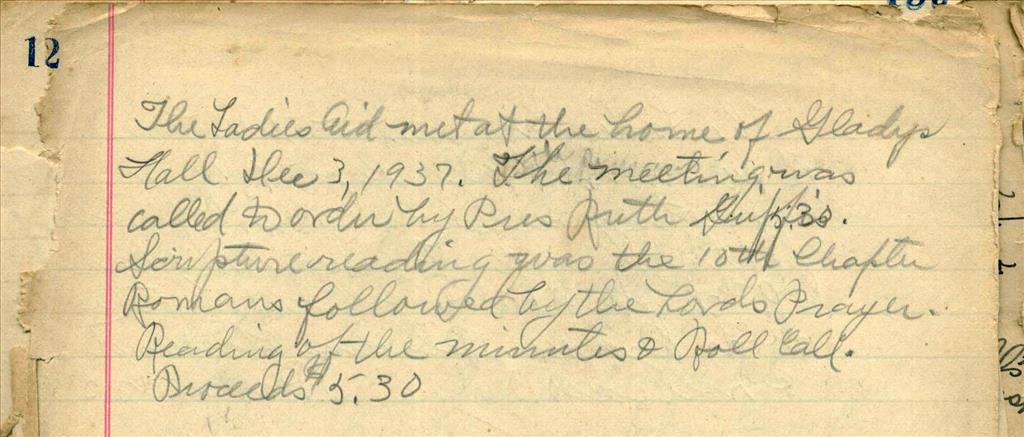 12
The Ladies Aid met at the home of Gladys
Hall Dec 3, 1937. The meeting was
called to order by Pres Ruth
Scripture reading was the 10th Chapter
Romans followed by the Lords Prayer.
Reading of the minutes & Roll Call.
Proceeds $5.30